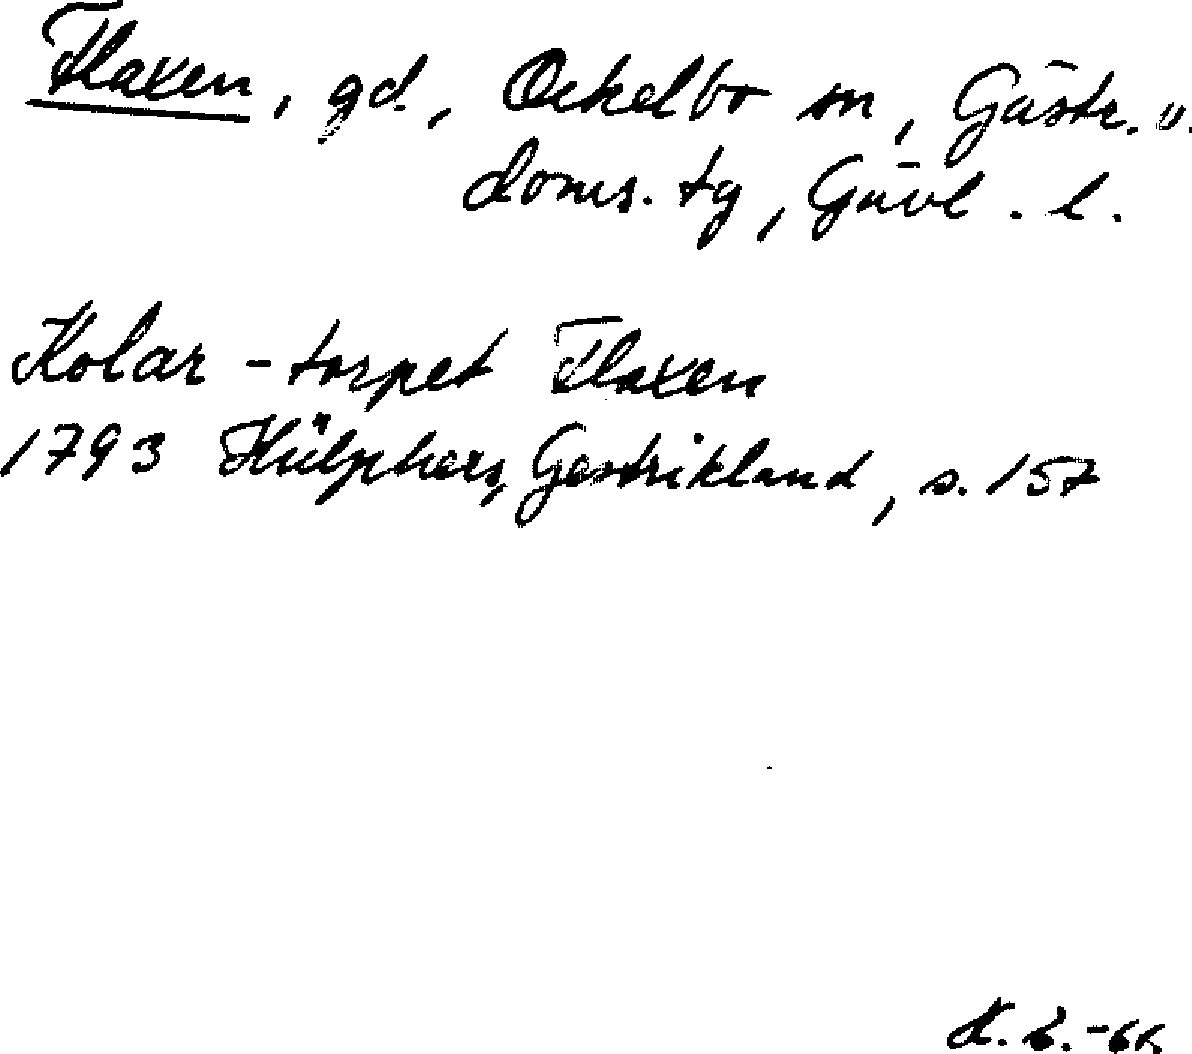 Flaxen, gd., Ockelbo sn, Gästr. v.
doms. tg, Gävl. l.
Kolar-torpet Flaxen
1793 Hülphers, Gestrikland, s. 157